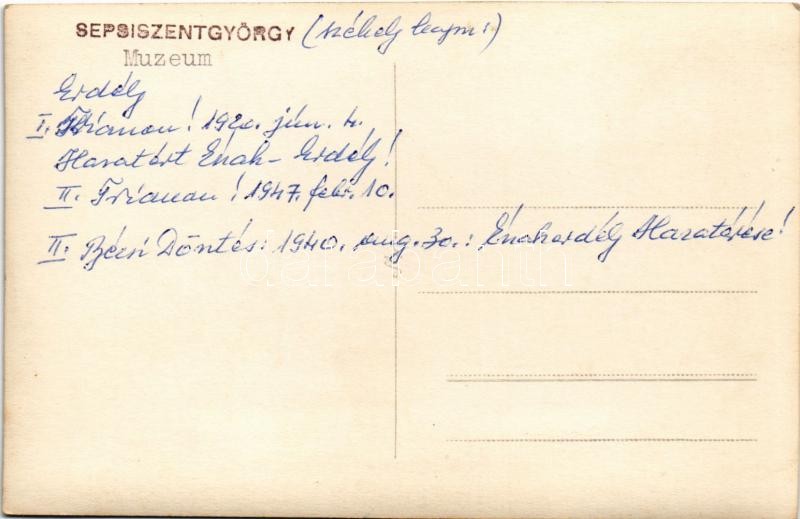 SEPSISZENTGYÖRGY (székely
Muzeum
Erdély
I. Trianon! 1920. jún. 4.
Hazatért Észak- Erdély!
II. Trianon! 1947. febr. 10.
II. Bécsi Döntés: 1940. aug. 30.: Északerdély Hazatérése!
darabanth